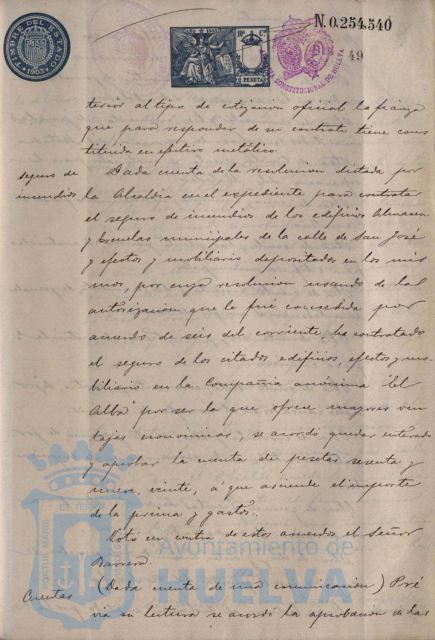 TIMBRE DEL ESTADO
1903
AÑO DE 1903
10ª C.
2 PESETAS
CONSTITUCIONAL DE HUELVA
N. 0.254.540
49
terior al tipo de cotización oficial la fianza
que para responder de su contrato tiene cons
tituida en efectivo metálico.
seguro de
incendios
Dada cuenta de la resolucion dictada por
la Alcaldia en el expediente para contratar
el seguro de incendios de los edificios Almacen
y Escuelas municipales de la calle de San José
y efectos y mobiliario depositados en los mis
mos, por cuya resolucion usando de la
autorizacion que le fué concedida por
acuerdo de seis del corriente, ha contratado
el seguro de los citados edificios, efectos y mo-
biliario en la Compañia anónima "el
Alba" por ser la que ofrece mayores ven
tajas económicas, se acordó quedar enterado
y aprobar la cuenta de pesetas sesenta y
nueve, veinte, á que asciende el importe
de la prima y gastos.
Votó en contra de estos acuerdos el Señor
Barrero.
Cuentas
(Dada cuenta de una comunicacion) Pré
via su lectura se acordó la aprobacion de las
Ayuntamiento de
HUELVA